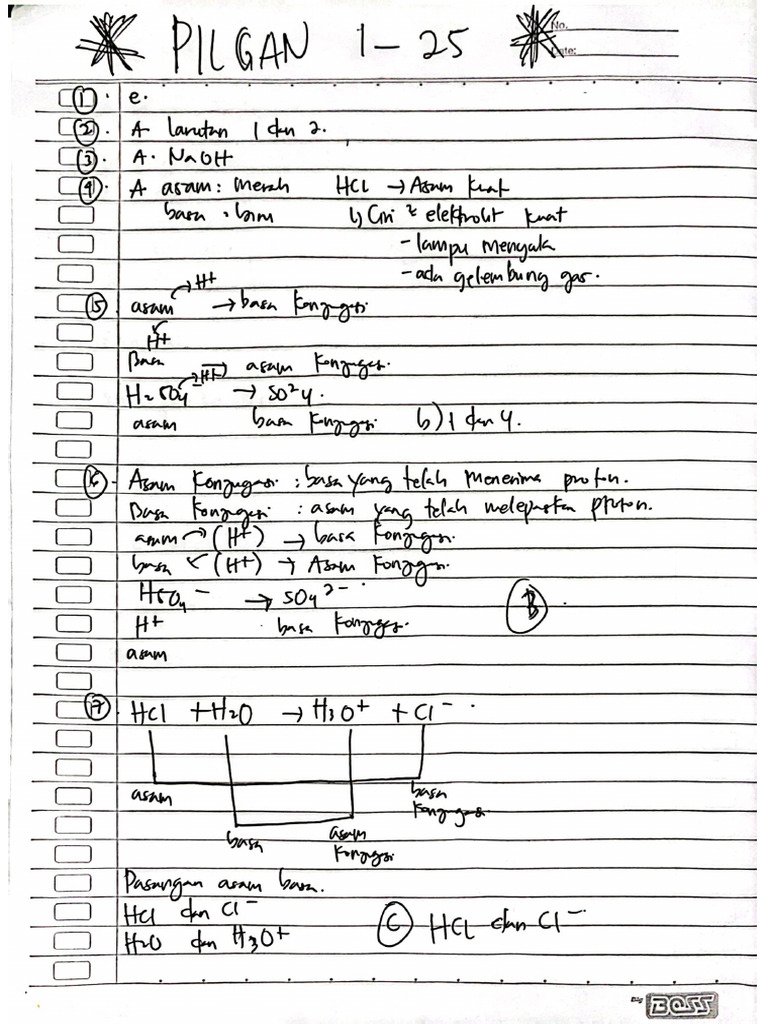 PILGAN 1 - 25
No.
Date:
1. e.
2. A larutan 1 dan 2.
3. A. NaOH
4. A asam : merah HCl → Asam kuat
basa : biru b) Ciri² elektrolit kuat
- lampu menyala
- ada gelembung gas.
5 asam → H+ → basa konjugasi
H+
Basa → asam konjugasi.
H2SO4 → H+ → SO²4.
asam basa konjugasi b) 1 dan 4.
6. Asam konjugasi : basa yang telah menerima proton.
Basa konjugasi : asam yang telah melepaskan proton.
asam → (H+) → basa konjugasi.
basa ← (H+) → Asam konjugasi.
HSO4⁻ → SO4²⁻
H+ basa konjugasi. B
asam
7. HCl + H2O → H3O+ + Cl⁻
asam basa konjugasi
basa asam konjugasi
Pasangan asam basa.
HCl dan Cl⁻ C HCl dan Cl⁻
H2O dan H3O+
Big BOSS